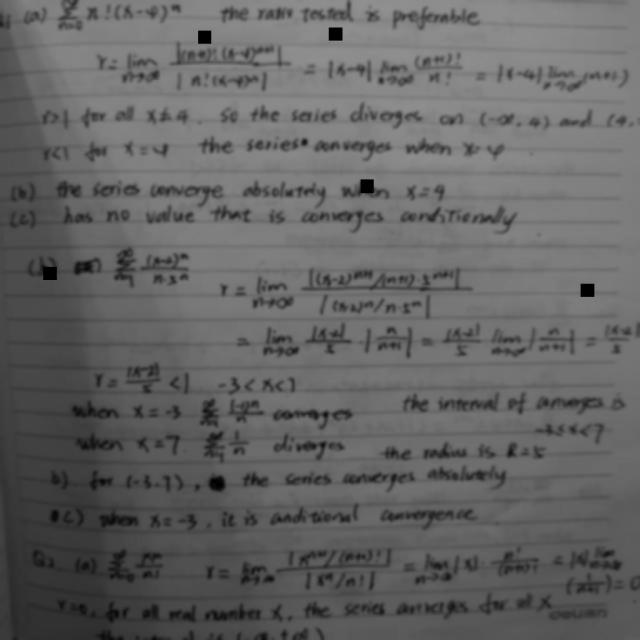 (a) ∞Σn=0 n!(x-4)^n the ratio tested is preferable
r = lim n→∞ |(n+1)!(x-4)^(n+1)| / |n!(x-4)^n| = |x-4| lim n→∞ (n+1)!/n! = |x-4| lim n→∞ (n+1)
r>1 for all x≠4. so the series diverges on (-∞, 4) and (4,
r<1 for x=4 the series converges when x=4
(b) the series converge absolutely when x=4
(c) has no value that is converges conditionally
∞Σn=1 (x-2)^n / n·5^n r = lim n→∞ |(x-2)^(n+1)/(n+1)·5^(n+1)| / |(x-2)^n/n·5^n|
= lim n→∞ |x-2|/5 · |n/(n+1)| = |x-2|/5 lim n→∞ |n/(n+1)| = |x-2|/5
r = |x-2|/5 < 1 -3<x<7
when x=-3 ∞Σn=1 (-1)^n/n converges the interval of converges is
-3≤x<7
when x=7. ∞Σn=1 1/n diverges the radius is R=5
b) for (-3.7), the series converges absolutely
(c) when x=-3, it is conditional convergence
Q2 (a) ∞Σn=0 x^n/n! r = lim n→∞ |x^(n+1)/(n+1)!| / |x^n/n!| = lim n→∞ |x| · n!/(n+1)! = |x| lim n→∞ (1/(n+1)) = 0
r=0, for all real number x, the series converges for all x